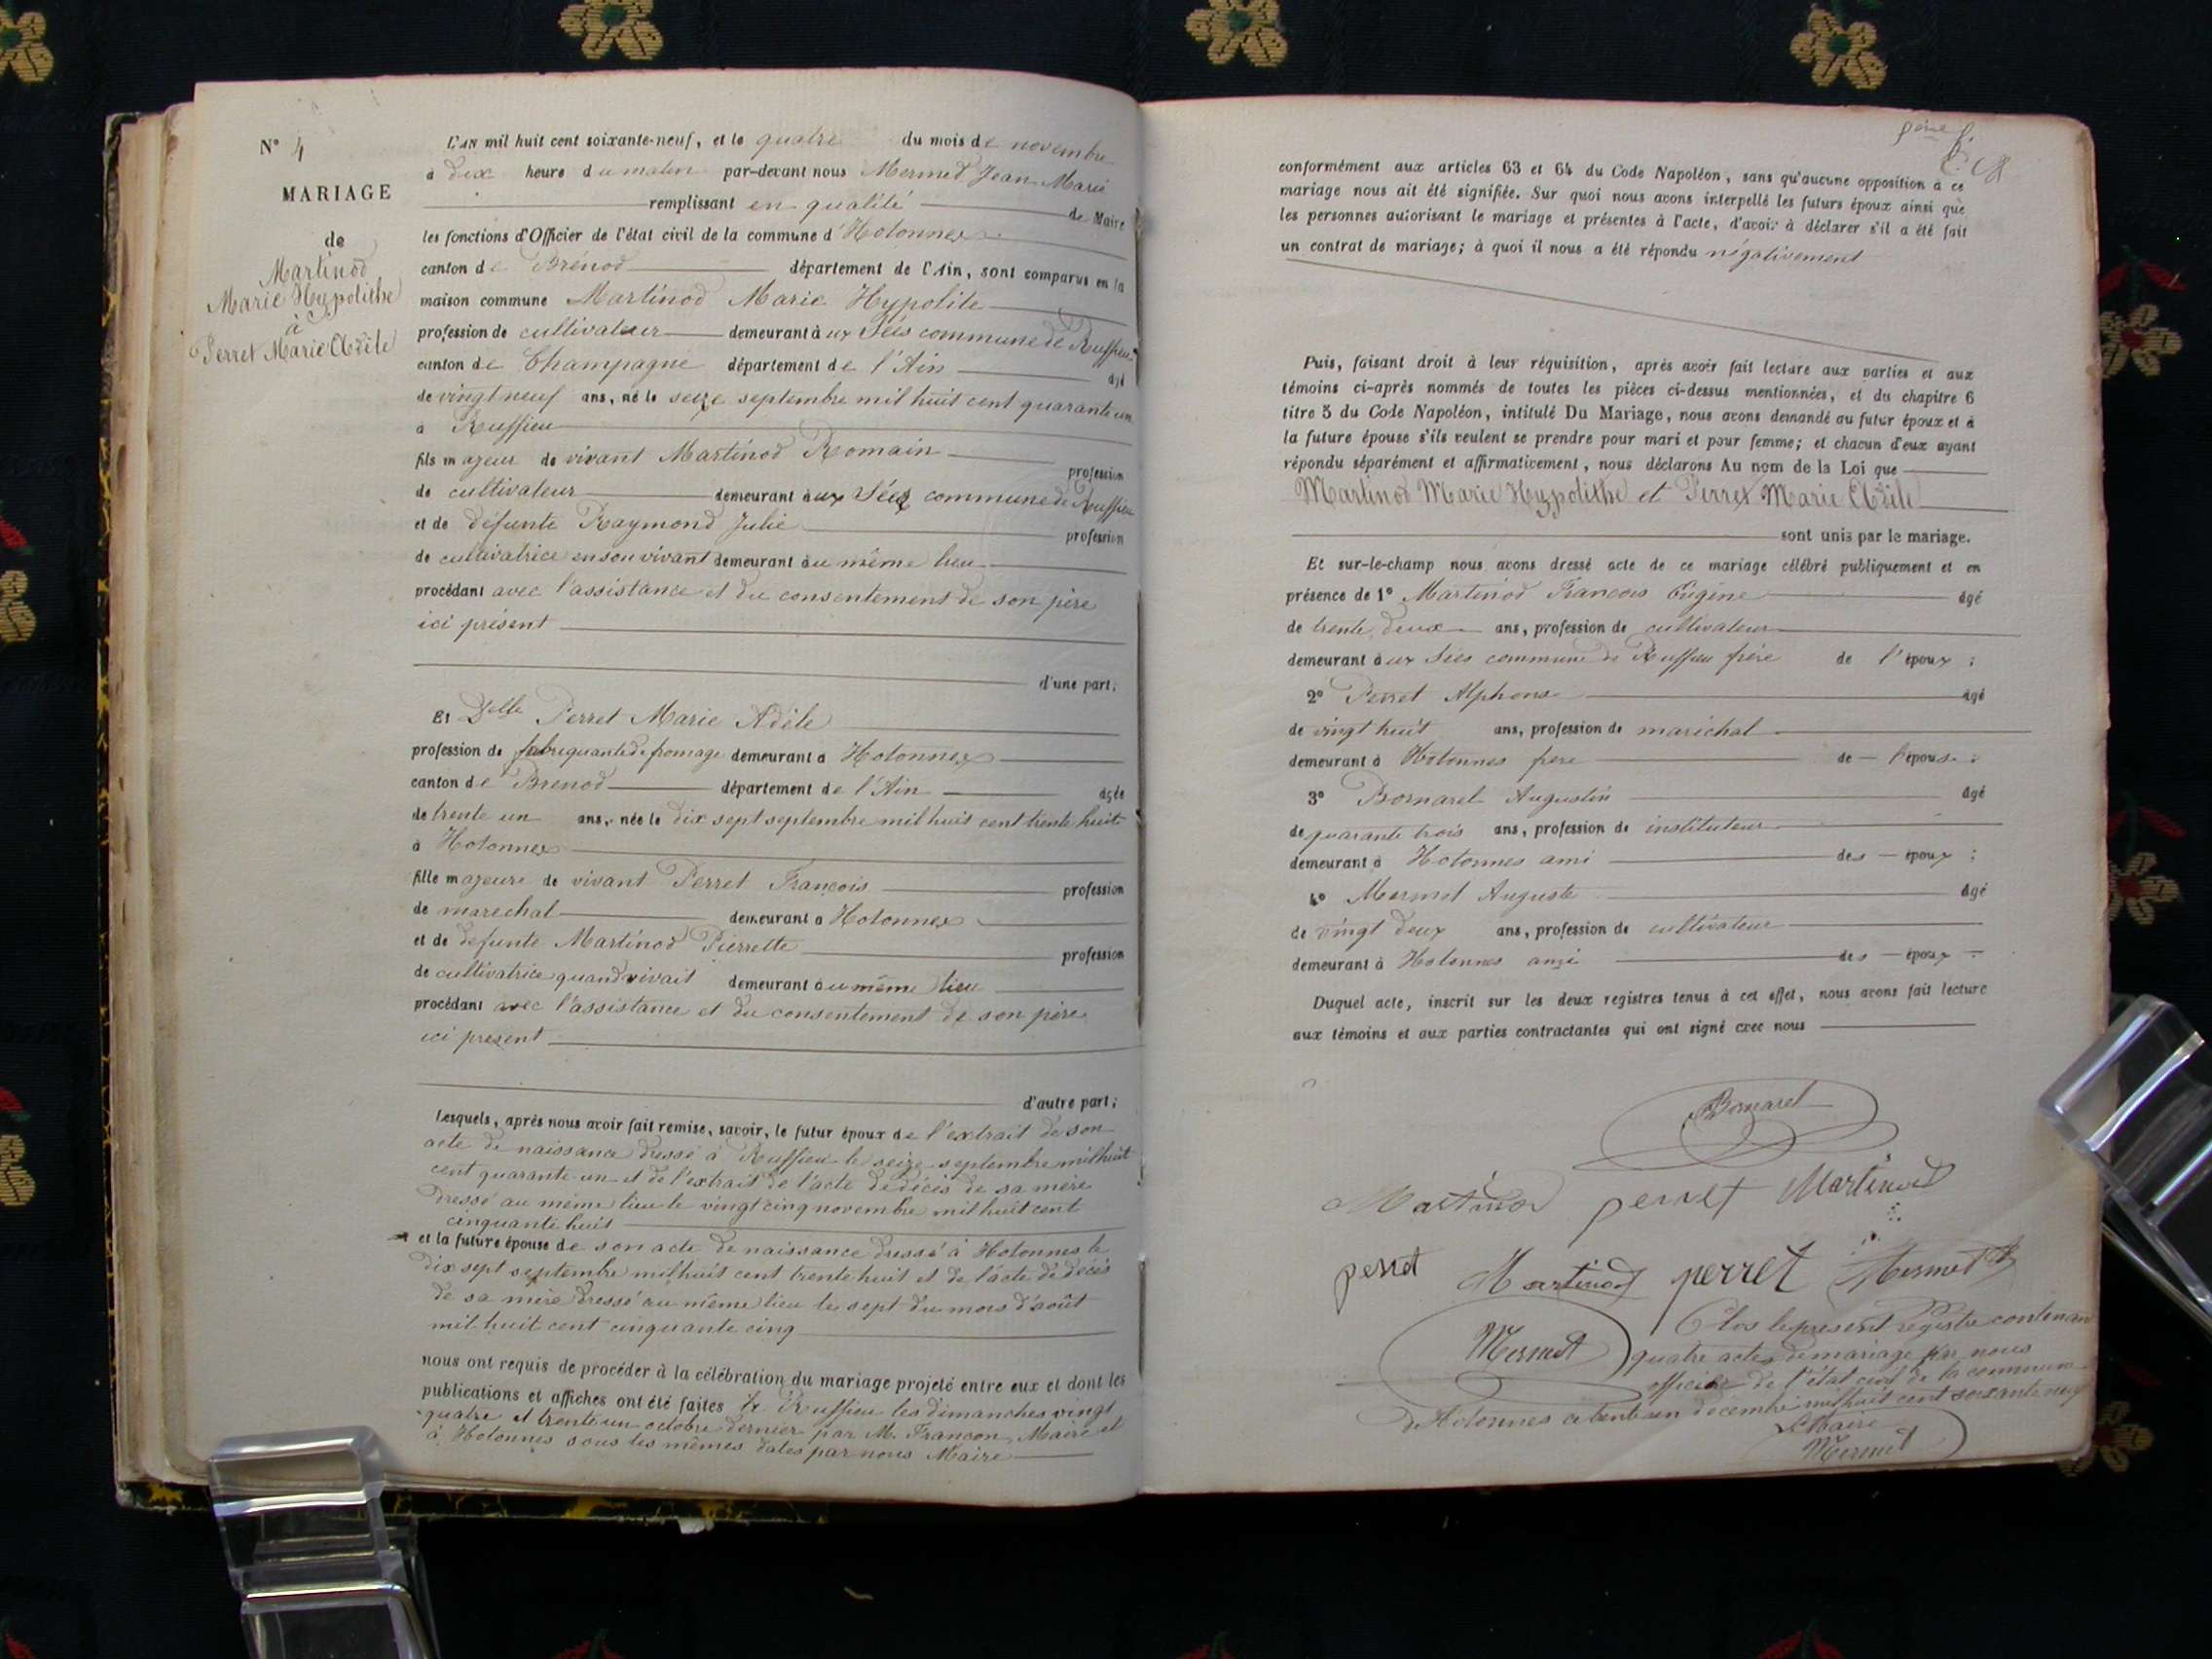 N° 4
MARIAGE
de
Martinod
Marie Hypolithe
à
Perret Marie Adèle
L'AN mil huit cent soixante-neuf, et le quatre du mois de novembre
à dix heure du matin par-devant nous Mermet Jean Marie
remplissant en qualité de Maire
les fonctions d'Officier de l'état civil de la commune d'Hotonnes
canton de Brénod département de l'Ain, sont comparus en la
maison commune Martinod Marie Hypolite
profession de cultivateur demeurant à ux Séés commune de Ruffieu
canton de Champagne département de l'Ain âgé
de vingt neuf ans, né le seize septembre mil huit cent quarante un
à Ruffieu
fils majeur de vivant Martinod Romain profession
de cultivateur demeurant aux Séés commune de Ruffieu
et de défunte Raymond Julie profession
de cultivatrice en son vivant demeurant au même lieu
procédant avec l'assistance et du consentement de son père
ici présent
d'une part;
Et Delle Perret Marie Adèle
profession de fabriquante de fromage demeurant à Hotonnes
canton de Brenod département de l'Ain âgée
de trente un ans, née le dix sept septembre mil huit cent trente huit
à Hotonnes
fille majeure de vivant Perret François profession
de marechal demeurant à Hotonnes
et de defunte Martinod Pierrette profession
de cultivatrice quand vivait demeurant au même lieu
procédant avec l'assistance et du consentement de son père
ici present
d'autre part;
Lesquels, après nous avoir fait remise, savoir, le futur époux de l'extrait de son
acte de naissance dressé à Ruffieu le seize septembre mil huit
cent quarante un et de l'extrait de l'acte de décès de sa mère
dressé au même lieu le vingt cinq novembre mil huit cent
cinquante huit
et la future épouse de son acte de naissance dressé à Hotonnes le
dix sept septembre mil huit cent trente huit et de l'acte de décès
de sa mère dressé au même lieu le sept du mois d'août
mil huit cent cinquante cinq
nous ont requis de procéder à la célébration du mariage projeté entre eux et dont les
publications et affiches ont été faites à Ruffieu les dimanches vingt
quatre et trente un octobre dernier par M. Francon, Maire et
à Hotonnes sous les mêmes dates par nous Maire
conformément aux articles 63 et 64 du Code Napoléon, sans qu'aucune opposition à ce
mariage nous ait été signifiée. Sur quoi nous avons interpellé les futurs époux ainsi que
les personnes autorisant le mariage et présentes à l'acte, d'avoir à déclarer s'il a été fait
un contrat de mariage; à quoi il nous a été répondu négativement
Puis, faisant droit à leur réquisition, après avoir fait lecture aux parties et aux
témoins ci-après nommés de toutes les pièces ci-dessus mentionnées, et du chapitre 6
titre 5 du Code Napoléon, intitulé Du Mariage, nous avons demandé au futur époux et à
la future épouse s'ils veulent se prendre pour mari et pour femme; et chacun d'eux ayant
répondu séparément et affirmativement, nous déclarons Au nom de la Loi que
Martinod Marie Hypolithe et Perret Marie Adèle
sont unis par le mariage.
Et sur-le-champ nous avons dressé acte de ce mariage célébré publiquement et en
présence de 1° Martinod Francois Eugène âgé
de trente deux ans, profession de cultivateur
demeurant aux Séés commune de Ruffieu frère de l'époux;
2° Perret Alphonse âgé
de vingt huit ans, profession de maréchal
demeurant à Hotonnes frere de l'épouse;
3° Bornarel Augustin âgé
de quarante trois ans, profession de instituteur
demeurant à Hotonnes ami des époux;
4° Mermet Auguste âgé
de vingt deux ans, profession de cultivateur
demeurant à Hotonnes ami des époux
Duquel acte, inscrit sur les deux registres tenus à cet effet, nous avons fait lecture
aux témoins et aux parties contractantes qui ont signé avec nous
Bornarel
Martinod perret Martinod
perret Martinod perret Mermet
Mermet
Clos le présent registre contenant
quatre actes de mariage par nous
officier de l'état civil de la commune
d'Hotonnes ce trente un decembre mil huit cent soixante neuf
Le Maire
Mermet